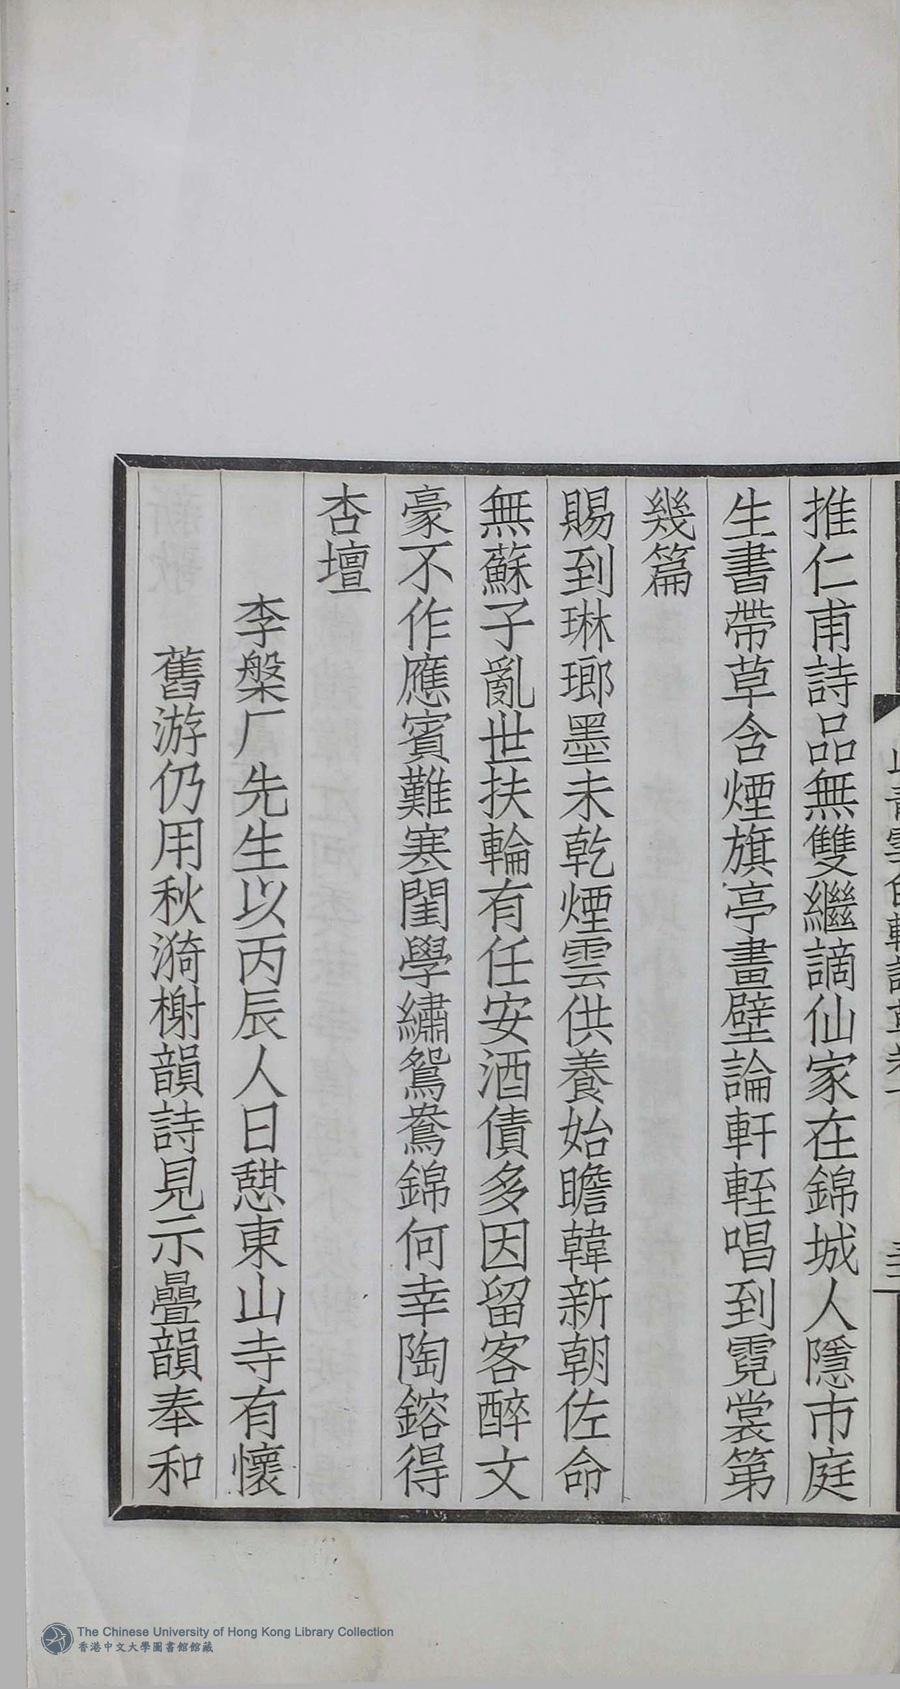 推仁甫詩品無雙繼謫仙家在錦城人隱市庭
生書帶草含煙旗亭畫壁論軒輊唱到霓裳第
幾篇
賜到琳瑯墨未乾煙雲供養始瞻韓新朝佐命
無蘇子亂世扶輪有任安酒債多因留客醉文
豪不作應賓難寒閨學繡鴛鴦錦何幸陶鎔得
杏壇
李槃厂先生以丙辰人日憇東山寺有懷
舊游仍用秋漪榭韻詩見示疊韻奉和
The Chinese University of Hong Kong Library Collection
香港中文大學圖書館館藏